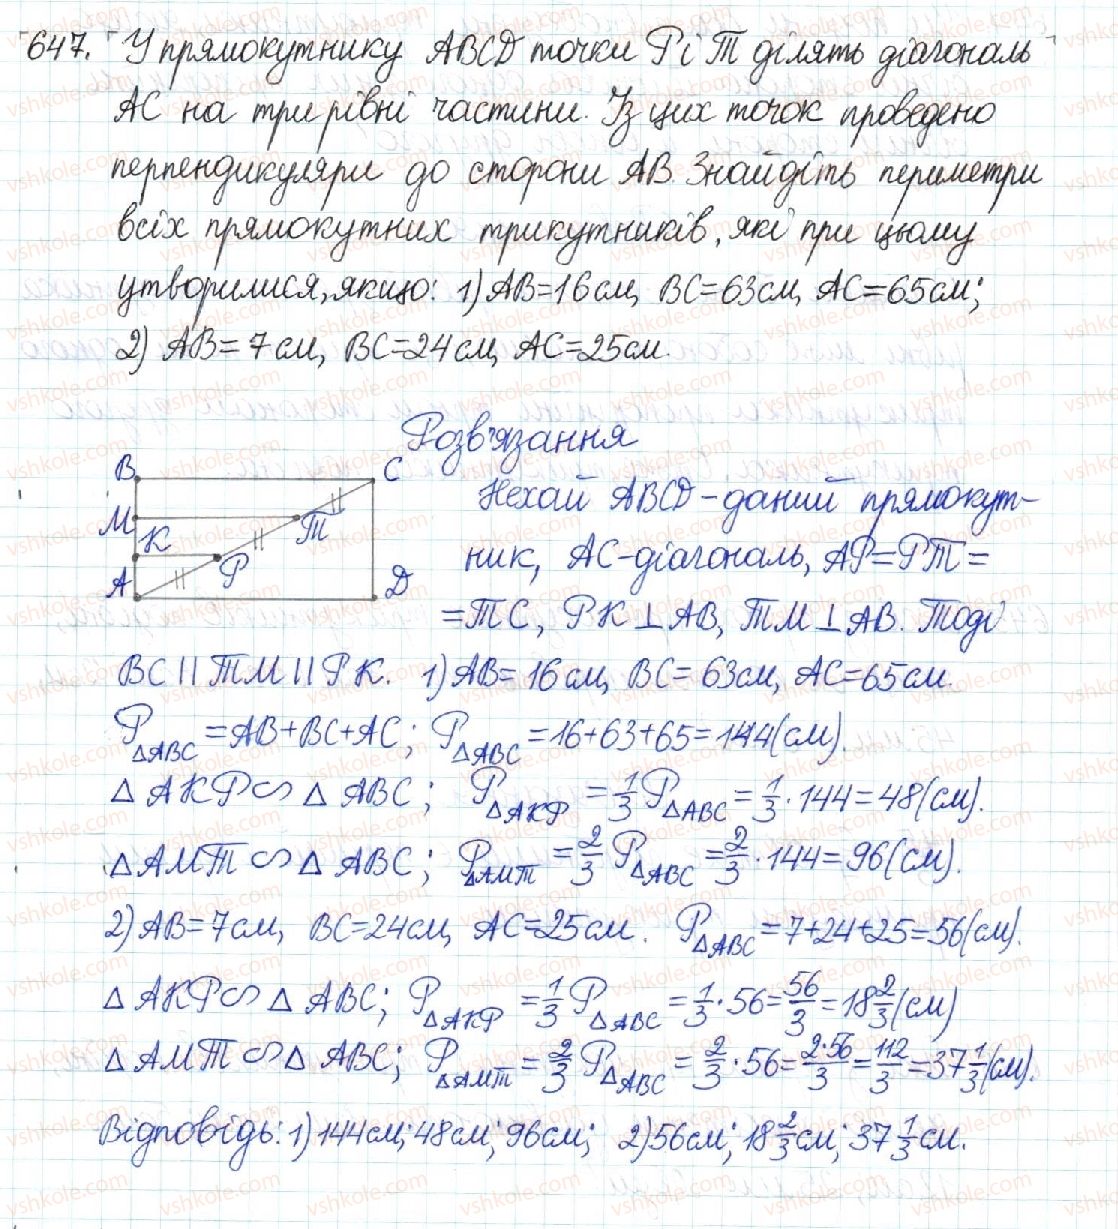 647. У прямокутнику ABCD точки P і T ділять діагональ
AC на три рівні частини. Із цих точок проведено
перпендикуляри до сторони AB. Знайдіть периметри
всіх прямокутних трикутників, які при цьому
утворилися, якщо: 1) AB=16см, BC=63см, AC=65см;
2) AB=7см, BC=24см, AC=25см.
Розв'язання
B C
M K T
P
A D
Нехай ABCD - даний прямокут-
ник, AC-діагональ, AP=PT=
=TC, PK⊥AB, TM⊥AB. Тоді
BC||TM||PK. 1) AB=16см, BC=63см, AC=65см.
P△ABC=AB+BC+AC; P△ABC=16+63+65=144(см).
△AKP∽△ABC; P△AKP=1/3P△ABC=1/3·144=48(см).
△AMT∽△ABC; P△AMT=2/3P△ABC=2/3·144=96(см).
2) AB=7см, BC=24см, AC=25см. P△ABC=7+24+25=56(см).
△AKP∽△ABC; P△AKP=1/3P△ABC=1/3·56=56/3=18 2/3(см)
△AMT∽△ABC; P△AMT=2/3P△ABC=2/3·56=2·56/3=112/3=37 1/3(см).
Відповідь: 1) 144см; 48см; 96см; 2) 56см; 18 2/3см; 37 1/3см.
vshkole.com